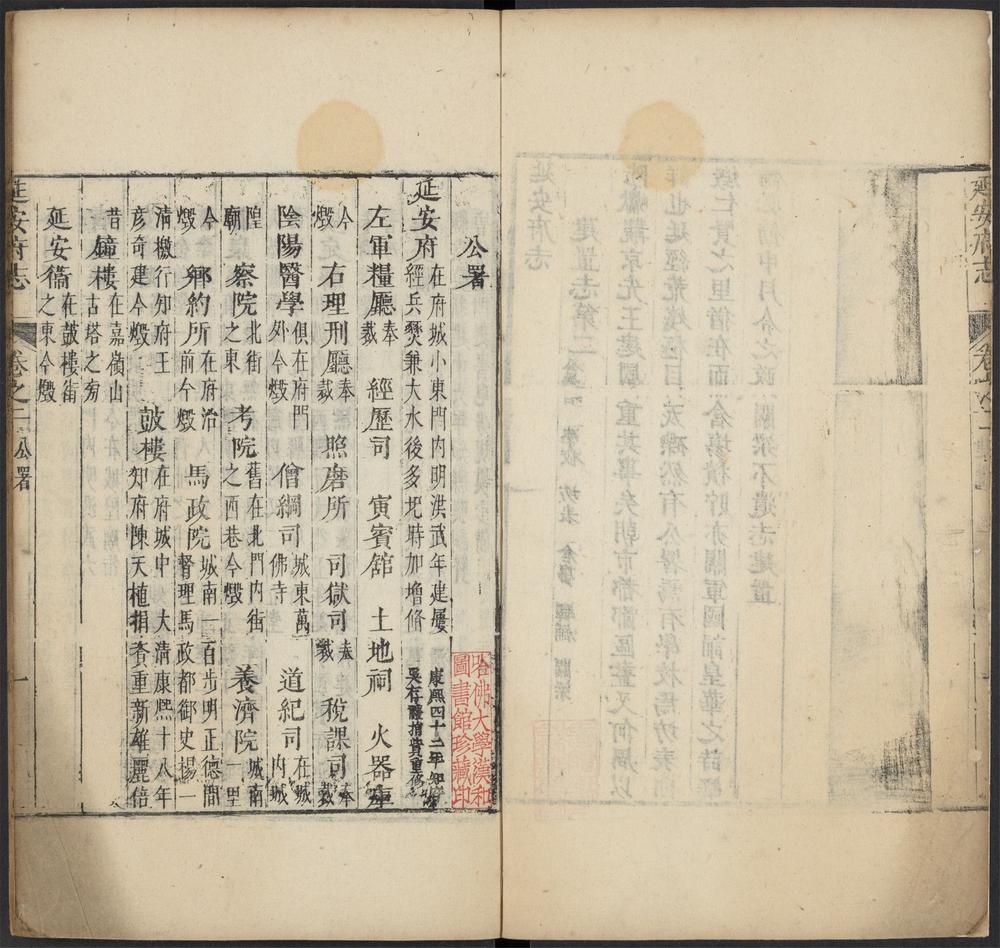 延安府志
公署
延安府在府城小東門内明洪武年建屢經兵燹兼大水後多圯時加增脩康熙四十二年知府吳存禮捐貲重脩
左軍糧廳奉裁 經歷司 寅賓舘 土地祠 火器庫
今燬 右理刑廳奉裁 照磨所 司獄司奉裁 稅課司奉裁
陰陽醫學俱在府門外今燬 僧綱司城東萬佛寺 道紀司在城内城
隍廟 察院北街之東 考院舊在北門内街之西巷今燬 養濟院城南一里
今燬 鄉約所在府治前今燬 馬政院城南一百步明正德間督理馬政都御史楊一
清檄行知府王彦奇建今燬 鼓樓在府城中大清康熙十八年知府陳天植捐貲重新雄麗倍
昔 鐘樓在嘉嶺山古塔之旁
延安衛在鼓樓街之東今燬
延安府志 卷之二 公署 一
哈佛大學漢和圖書館珍藏印